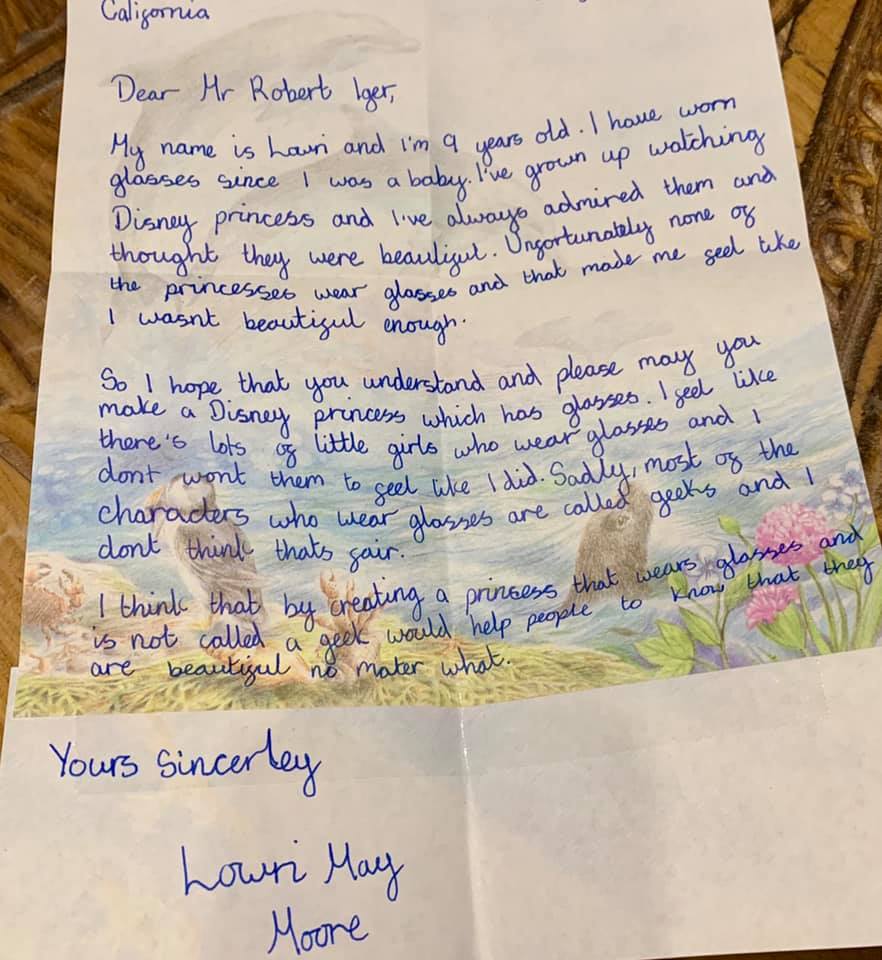 California
Dear Mr Robert Iger,
My name is Lowri and i'm 9 years old. I have worn
glasses since I was a baby. I've grown up watching
Disney princess and I've always admired them and
thought they were beautiful. Unfortunately none of
the princesses wear glasses and that made me feel like
I wasnt beautiful enough.
So I hope that you understand and please may you
make a Disney princess which has glasses. I feel like
there's lots of little girls who wear glasses and I
dont wont them to feel like I did. Sadly, most of the
characters who wear glasses are called geeks and I
dont think thats fair.
I think that by creating a prinsess that wears glasses and
is not called a geek would help people to know that they
are beautiful no mater what.
Yours Sincerley
Lowri May
Moore